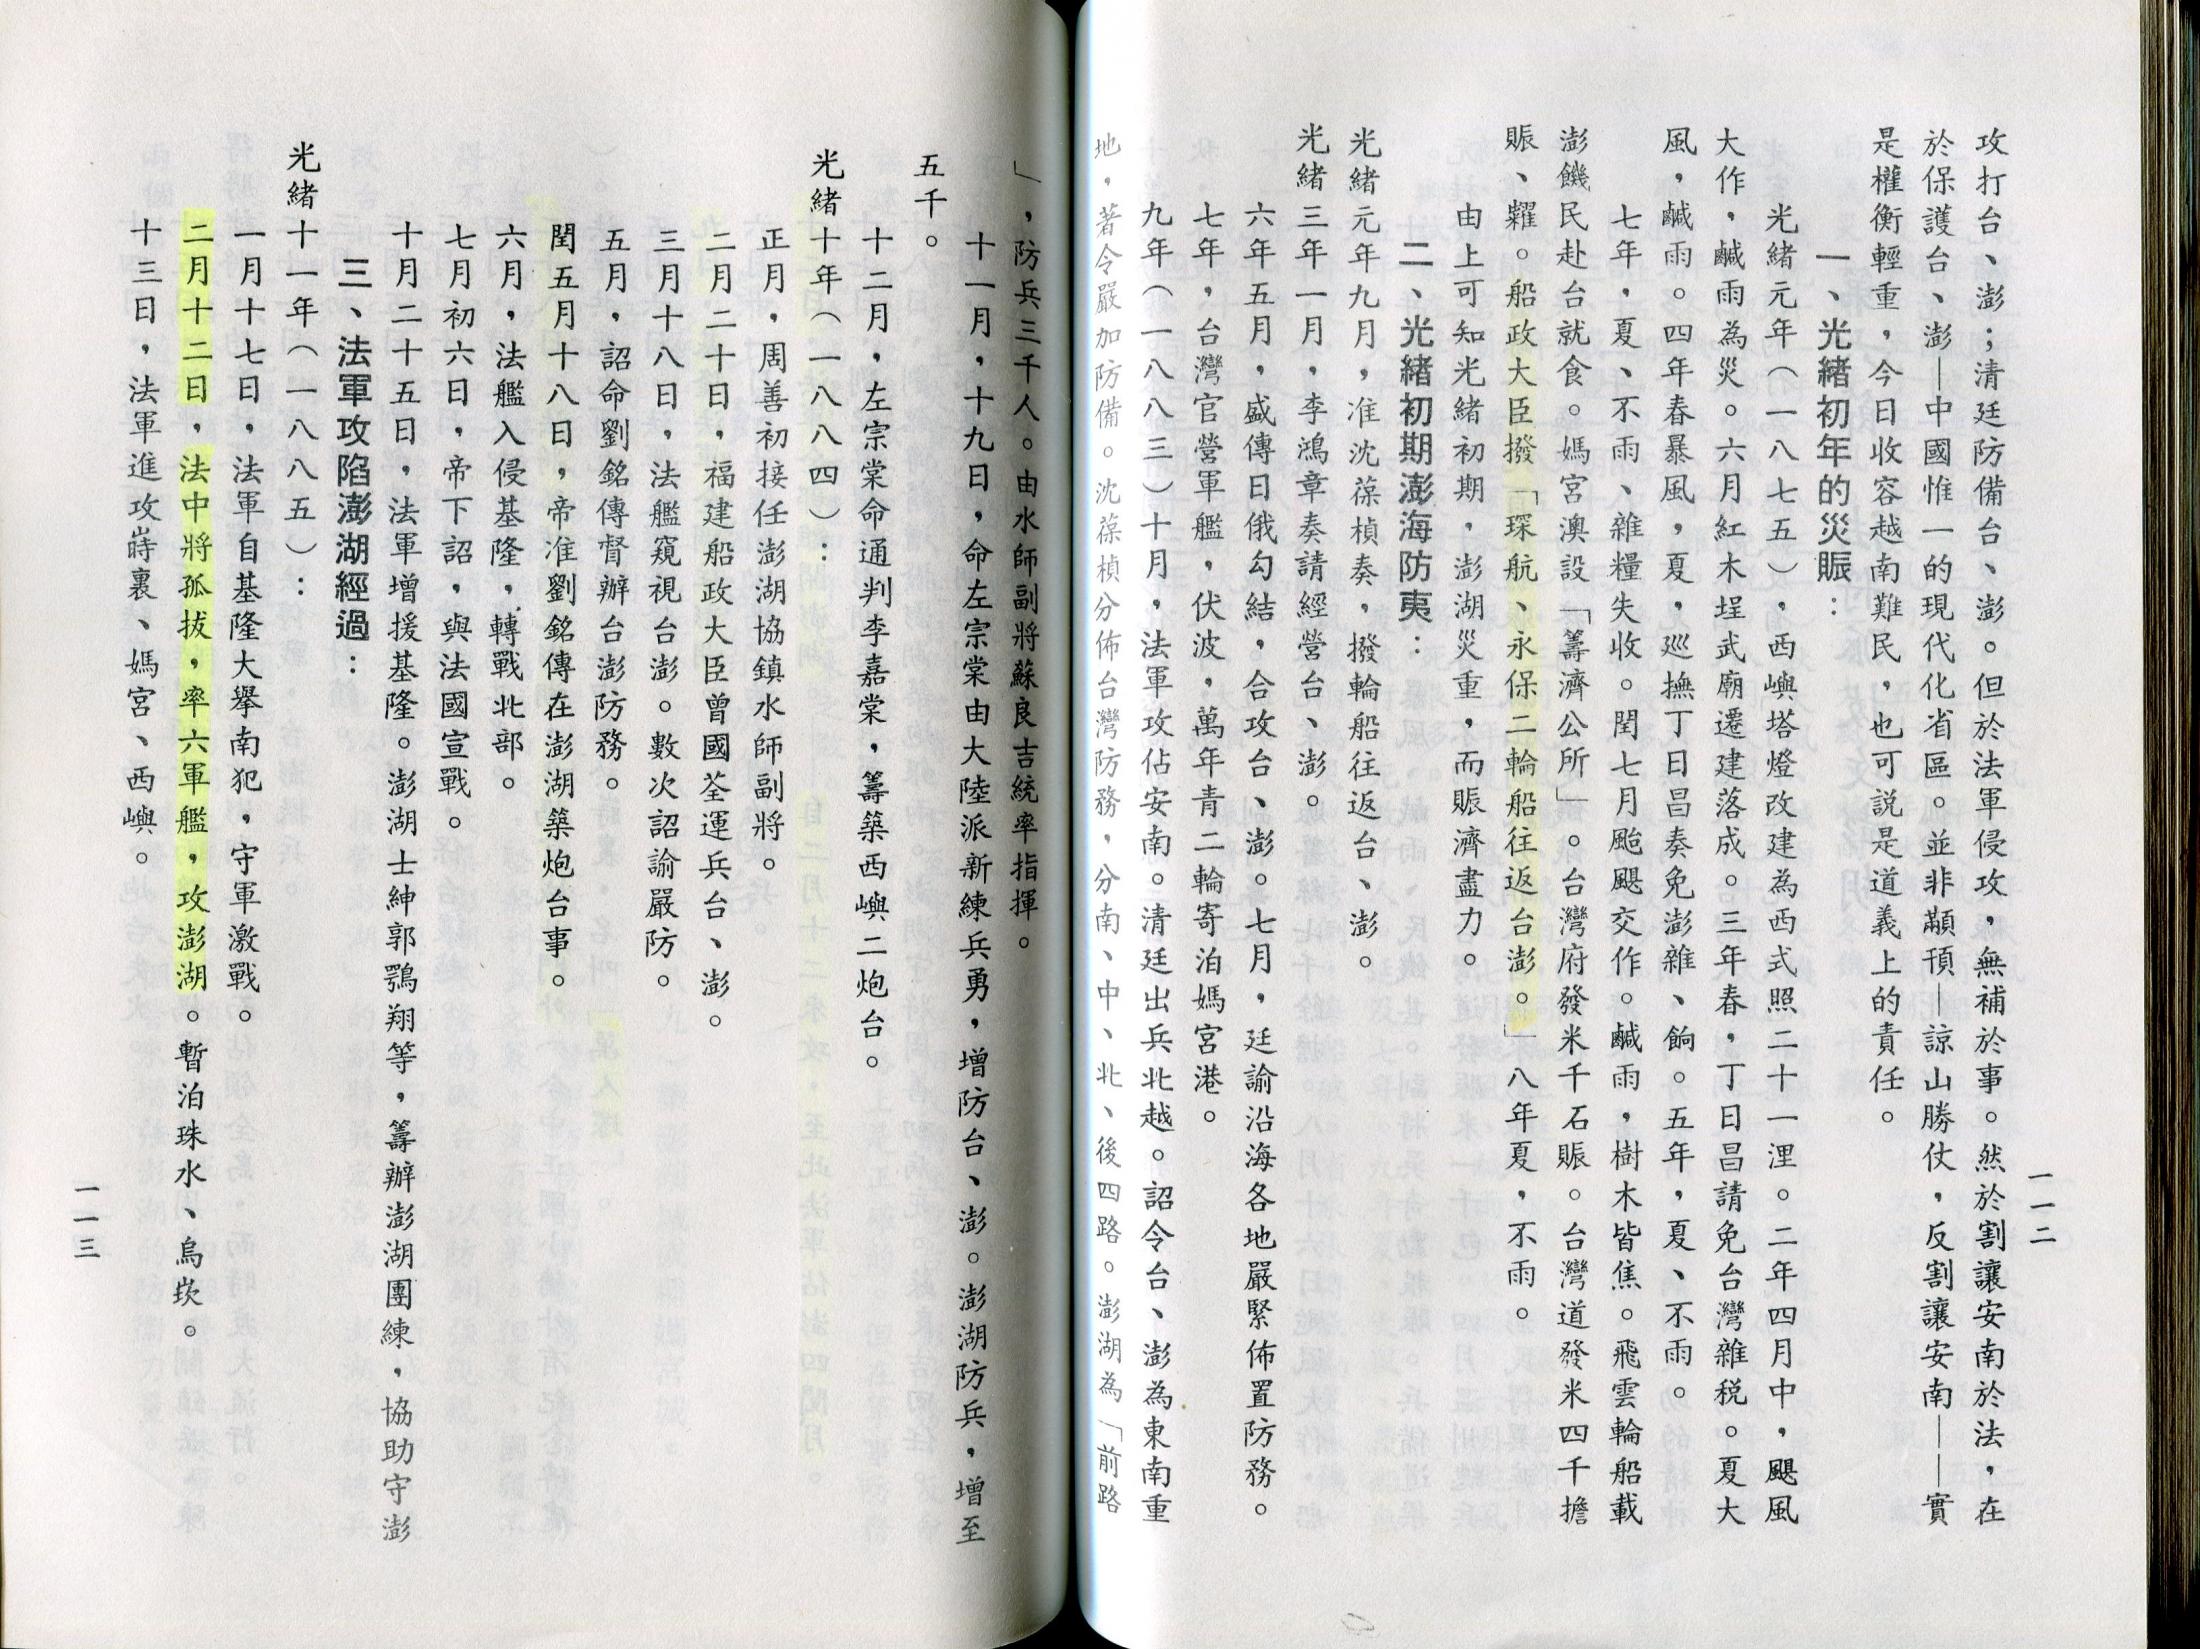 攻打台、澎；清廷防備台、澎。但於法軍侵攻，無補於事。然於割讓安南於法，在
於保護台、澎—中國惟一的現代化省區。並非顢頇—諒山勝仗，反割讓安南——實
是權衡輕重，今日收容越南難民，也可說是道義上的責任。
一、光緒初年的災賑：
光緒元年（一八七五），西嶼塔燈改建為西式照二十一浬。二年四月中，颶風
大作，鹹雨為災。六月紅木埕武廟遷建落成。三年春，丁日昌請免台灣雜稅。夏大
風，鹹雨。四年春暴風，夏，巡撫丁日昌奏免澎雜、餉。五年，夏、不雨。
七年，夏、不雨、雜糧失收。閏七月颱颶交作。鹹雨，樹木皆焦。飛雲輪船載
澎饑民赴台就食。媽宮澳設「籌濟公所」。台灣府發米千石賑。台灣道發米四千擔
賑、糶。船政大臣撥「琛航、永保二輪船往返台澎。」八年夏，不雨。
由上可知光緒初期，澎湖災重，而賑濟盡力。
二、光緒初期澎海防夷：
光緒元年九月，准沈葆楨奏，撥輪船往返台、澎。
光緒三年一月，李鴻章奏請經營台、澎。
六年五月，盛傳日俄勾結，合攻台、澎。七月，廷諭沿海各地嚴緊佈置防務。
七年，台灣官營軍艦，伏波，萬年青二輪寄泊媽宮港。
九年（一八八三）十月，法軍攻佔安南。清廷出兵北越。詔令台、澎為東南重
地，著令嚴加防備。沈葆楨分佈台灣防務，分南、中、北、後四路。澎湖為「前路
一一二
」，防兵三千人。由水師副將蘇良吉統率指揮。
十一月，十九日，命左宗棠由大陸派新練兵勇，增防台、澎。澎湖防兵，增至
五千。
十二月，左宗棠命通判李嘉棠，籌築西嶼二炮台。
光緒十年（一八八四）：
正月，周善初接任澎湖協鎮水師副將。
二月二十日，福建船政大臣曾國荃運兵台、澎。
三月十八日，法艦窺視台澎。數次詔諭嚴防。
五月，詔命劉銘傳督辦台澎防務。
閏五月十八日，帝准劉銘傳在澎湖築炮台事。
六月，法艦入侵基隆，轉戰北部。
七月初六日，帝下詔，與法國宣戰。
十月二十五日，法軍增援基隆。澎湖士紳郭鶚翔等，籌辦澎湖團練，協助守澎
三、法軍攻陷澎湖經過：
光緒十一年（一八八五）：
一月十七日，法軍自基隆大舉南犯，守軍激戰。
二月十二日，法中將孤拔，率六軍艦，攻澎湖。暫泊珠水、烏崁。
十三日，法軍進攻蒔裏、媽宮、西嶼。
一一三